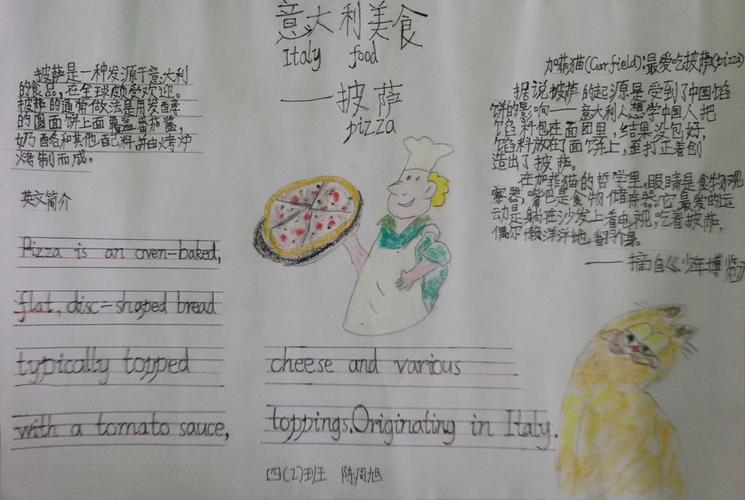 意大利美食
Italy food
——披萨
pizza
披萨是一种发源于意大利
的食品,在全球颇受欢迎。
披萨的通常做法是用发酵
的圆面饼上面覆盖番茄酱,
奶酪和其他配料,并由烤炉
烤制而成。
英文简介
Pizza is an oven-baked,
flat, disc-shaped bread
typically topped
with a tomato sauce,
cheese and various
toppings.Originating in Italy.
加菲猫(Garfield):最爱吃披萨(pizza)
据说披萨的起源是受到了中国馅
饼的影响——意大利人想学中国人把
馅料包在面团里,结果没包好,
馅料放在了面饼上,歪打正着创
造出了披萨。
在加菲猫的哲学里,眼睛是食物观
察器,嘴巴是食物储存器,它最爱的运
动是躺在沙发上看电视,吃着披萨,
偶尔懒洋洋地翻个身。
——摘自《少年博览》
四(2)班 陈周旭